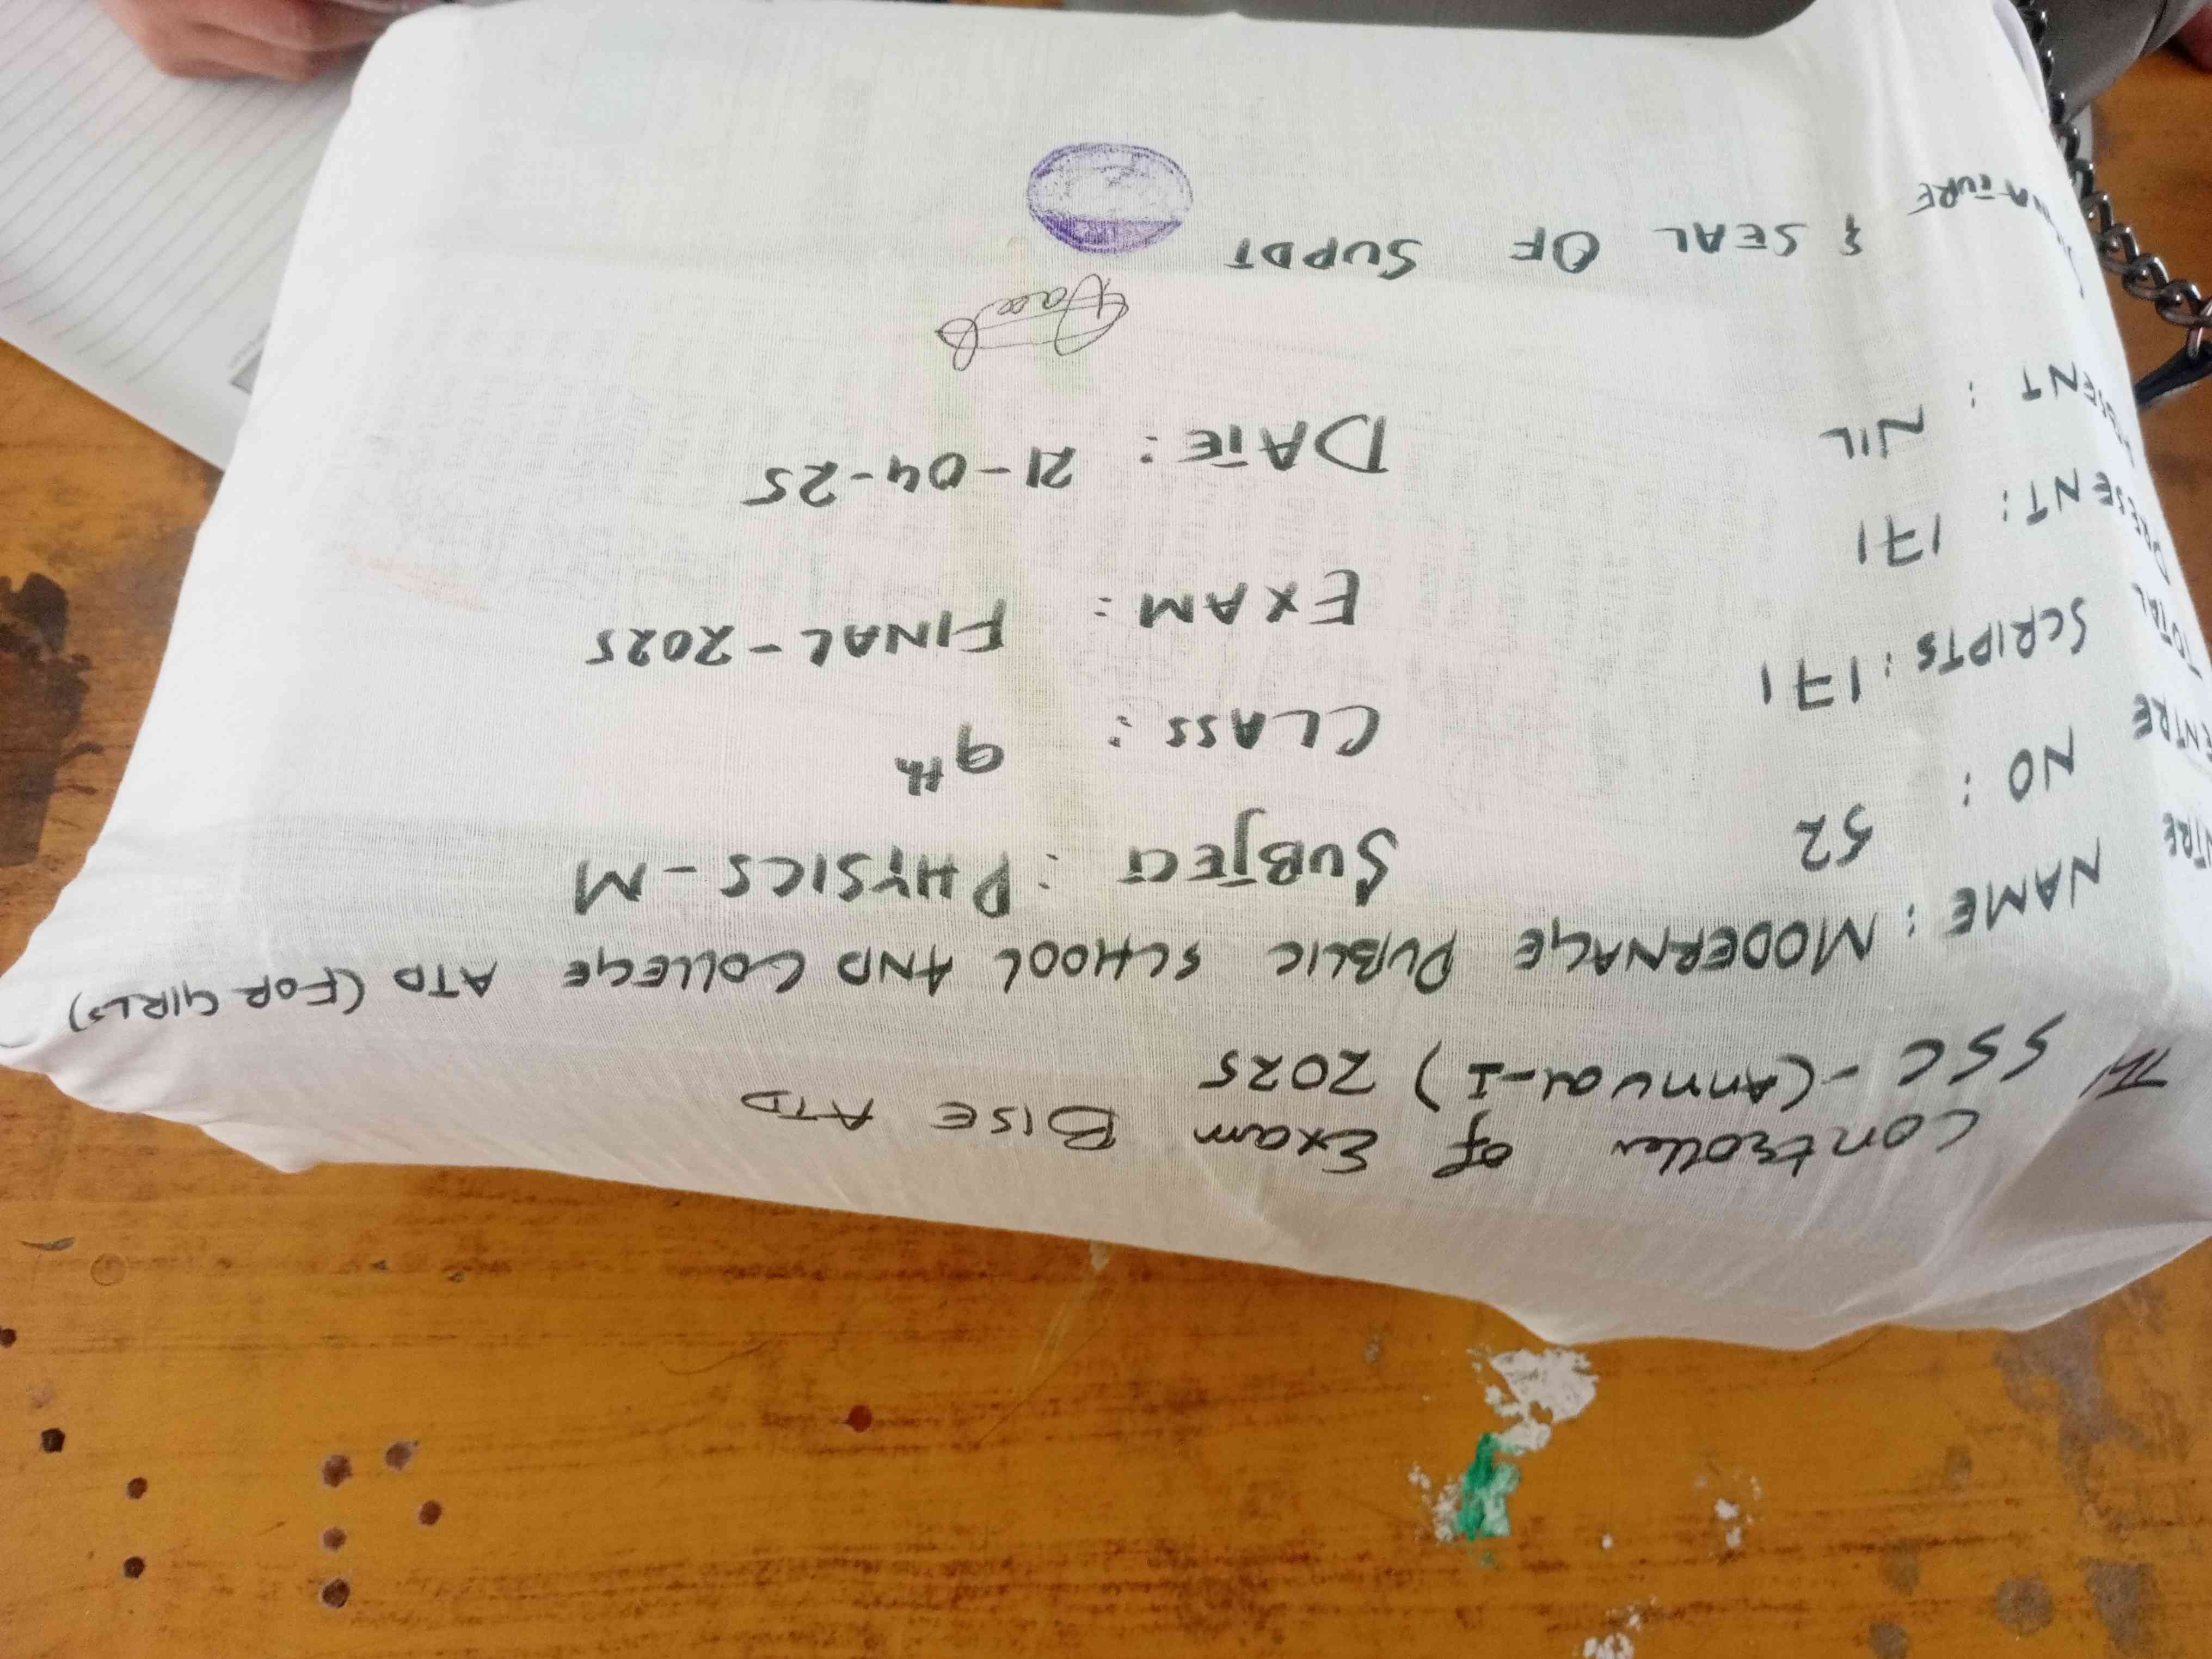 The
Controller of Exam BISE ATD
SSC - (Annual-I) 2025
NAME: MODERNAGE PUBLIC SCHOOL AND COLLEGE ATD (FOR GIRLS)
NO: 52 SUBJECT: PHYSICS-M
SCRIPTS: 171 CLASS: 9th
PRESENT: 171 EXAM: FINAL-2025
ABSENT: NIL DATE: 21-04-25
SIGNATURE & SEAL OF SUPDT